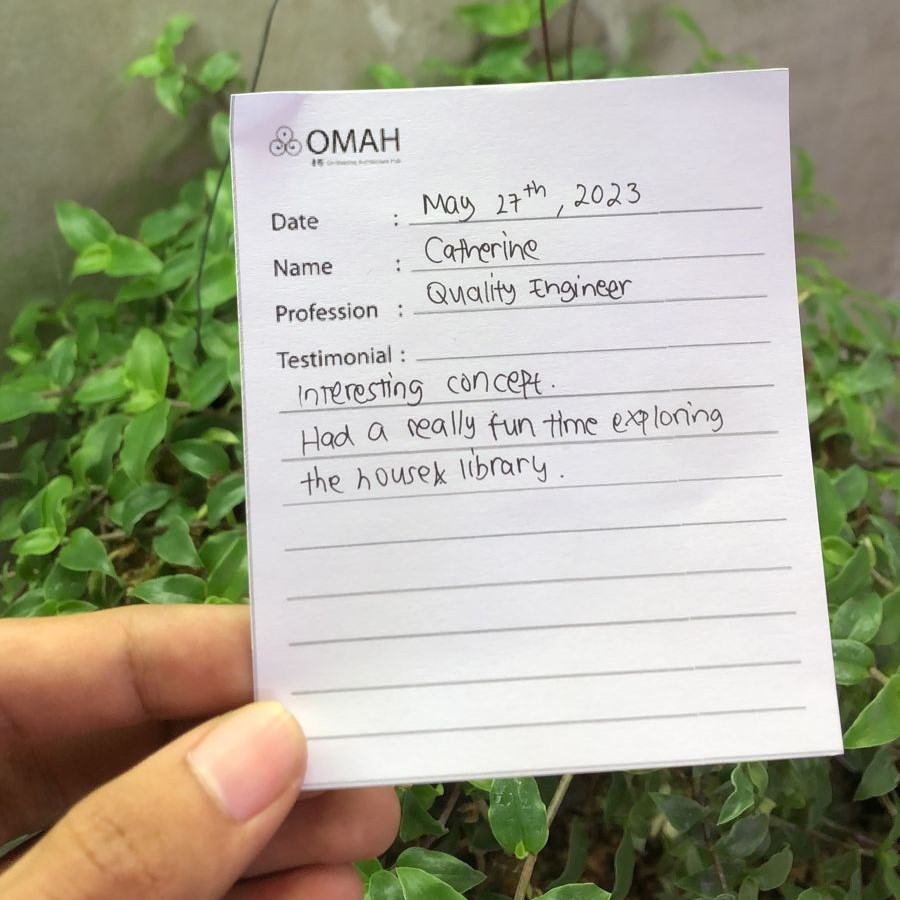 OMAH
Date : May 27th, 2023
Name : Catherine
Profession : Quality Engineer
Testimonial :
Interesting concept.
Had a really fun time exploring
the house & library.